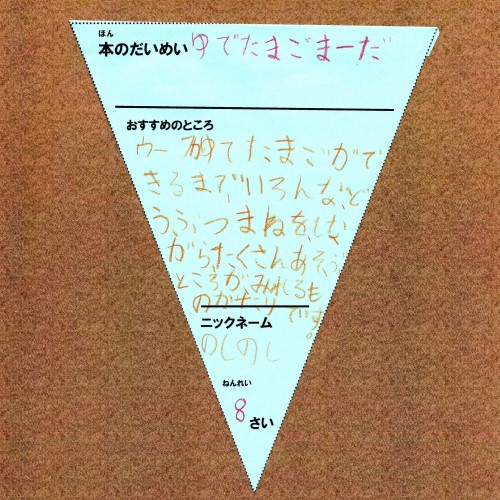 ほん
本のだいめい ゆでたまごまーだ
おすすめのところ
ゆでたまごがで
きるまで、いろんな、ど
うぶつまねを、しな
がら、たくさんあそぶ
ところが、みれるも
のがたりです。
ニックネーム
のしのし
ねんれい
8さい